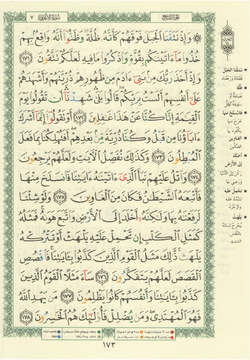 الجزء التاسع
سورة الأعراف ٧
۞ وَإِذْ نَتَقْنَا الْجَبَلَ فَوْقَهُمْ كَأَنَّهُ ظُلَّةٌ وَظَنُّوا أَنَّهُ وَاقِعٌ بِهِمْ
خُذُوا مَا ءَاتَيْنَٰكُم بِقُوَّةٍ وَاذْكُرُوا مَا فِيهِ لَعَلَّكُمْ تَتَّقُونَ ١٧١
وَإِذْ أَخَذَ رَبُّكَ مِن بَنِي ءَادَمَ مِن ظُهُورِهِمْ ذُرِّيَّتَهُمْ وَأَشْهَدَهُمْ
عَلَىٰ أَنفُسِهِمْ أَلَسْتُ بِرَبِّكُمْ قَالُوا بَلَىٰ شَهِدْنَا أَن تَقُولُوا يَوْمَ
الْقِيَٰمَةِ إِنَّا كُنَّا عَنْ هَٰذَا غَٰفِلِينَ ١٧٢ أَوْ تَقُولُوا إِنَّمَا أَشْرَكَ
ءَابَاؤُنَا مِن قَبْلُ وَكُنَّا ذُرِّيَّةً مِّن بَعْدِهِمْ أَفَتُهْلِكُنَا بِمَا فَعَلَ
الْمُبْطِلُونَ ١٧٣ وَكَذَٰلِكَ نُفَصِّلُ الْآيَٰتِ وَلَعَلَّهُمْ يَرْجِعُونَ ١٧٤
وَاتْلُ عَلَيْهِمْ نَبَأَ الَّذِي ءَاتَيْنَٰهُ ءَايَٰتِنَا فَانسَلَخَ مِنْهَا
فَأَتْبَعَهُ الشَّيْطَٰنُ فَكَانَ مِنَ الْغَاوِينَ ١٧٥ وَلَوْ شِئْنَا
لَرَفَعْنَٰهُ بِهَا وَلَٰكِنَّهُ أَخْلَدَ إِلَى الْأَرْضِ وَاتَّبَعَ هَوَىٰهُ فَمَثَلُهُ
كَمَثَلِ الْكَلْبِ إِن تَحْمِلْ عَلَيْهِ يَلْهَثْ أَوْ تَتْرُكْهُ
يَلْهَث ذَّٰلِكَ مَثَلُ الْقَوْمِ الَّذِينَ كَذَّبُوا بِـَٔايَٰتِنَا فَاقْصُصِ
الْقَصَصَ لَعَلَّهُمْ يَتَفَكَّرُونَ ١٧٦ سَاءَ مَثَلًا الْقَوْمُ الَّذِينَ
كَذَّبُوا بِـَٔايَٰتِنَا وَأَنفُسَهُمْ كَانُوا يَظْلِمُونَ ١٧٧ مَن يَهْدِ اللَّهُ
فَهُوَ الْمُهْتَدِي وَمَن يُضْلِلْ فَأُولَٰئِكَ هُمُ الْخَٰسِرُونَ ١٧٨
١٧٣